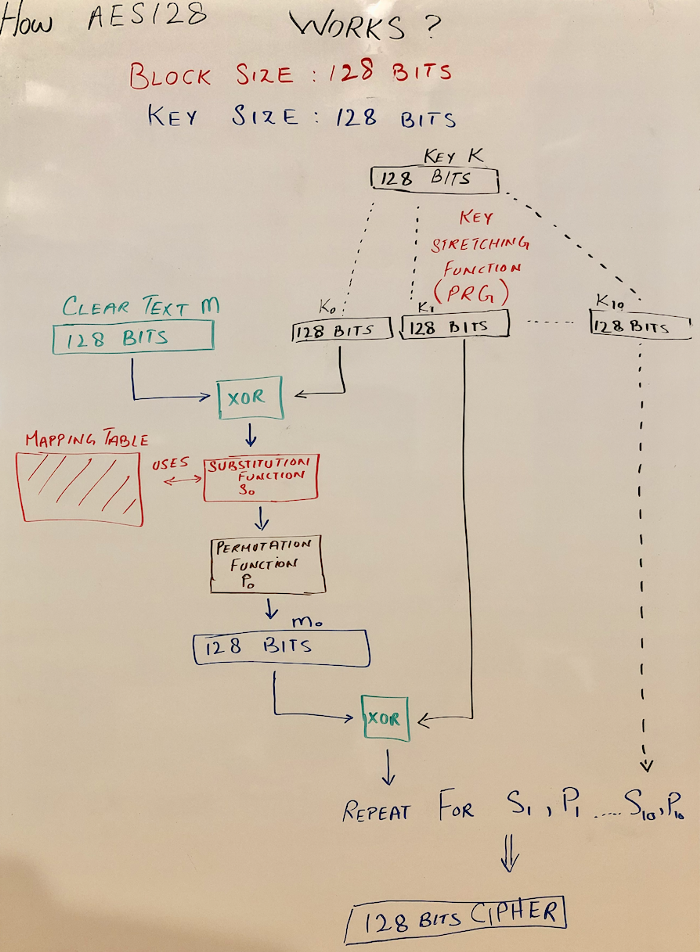 HOW AES128 WORKS?
BLOCK SIZE : 128 BITS
KEY SIZE : 128 BITS
KEY K
128 BITS
KEY
STRETCHING
FUNCTION
(PRG)
CLEAR TEXT m
128 BITS
K₀
128 BITS
K₁
128 BITS
K₁₀
128 BITS
XOR
MAPPING TABLE
USES
SUBSTITUTION
FUNCTION
S₀
PERMUTATION
FUNCTION
P₀
m₀
128 BITS
XOR
REPEAT FOR S₁, P₁ ..... S₁₀, P₁₀
128 BITS CIPHER